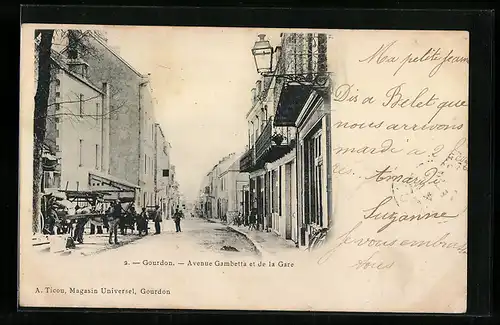 Ma petite Jeanne
Dis a Belet que
nous arrivons
mardi a 2
Amardi
Suzanne
Je vous embrasse
tous
2. — Gourdon. — Avenue Gambetta et de la Gare
A. Ticou, Magasin Universel, Gourdon